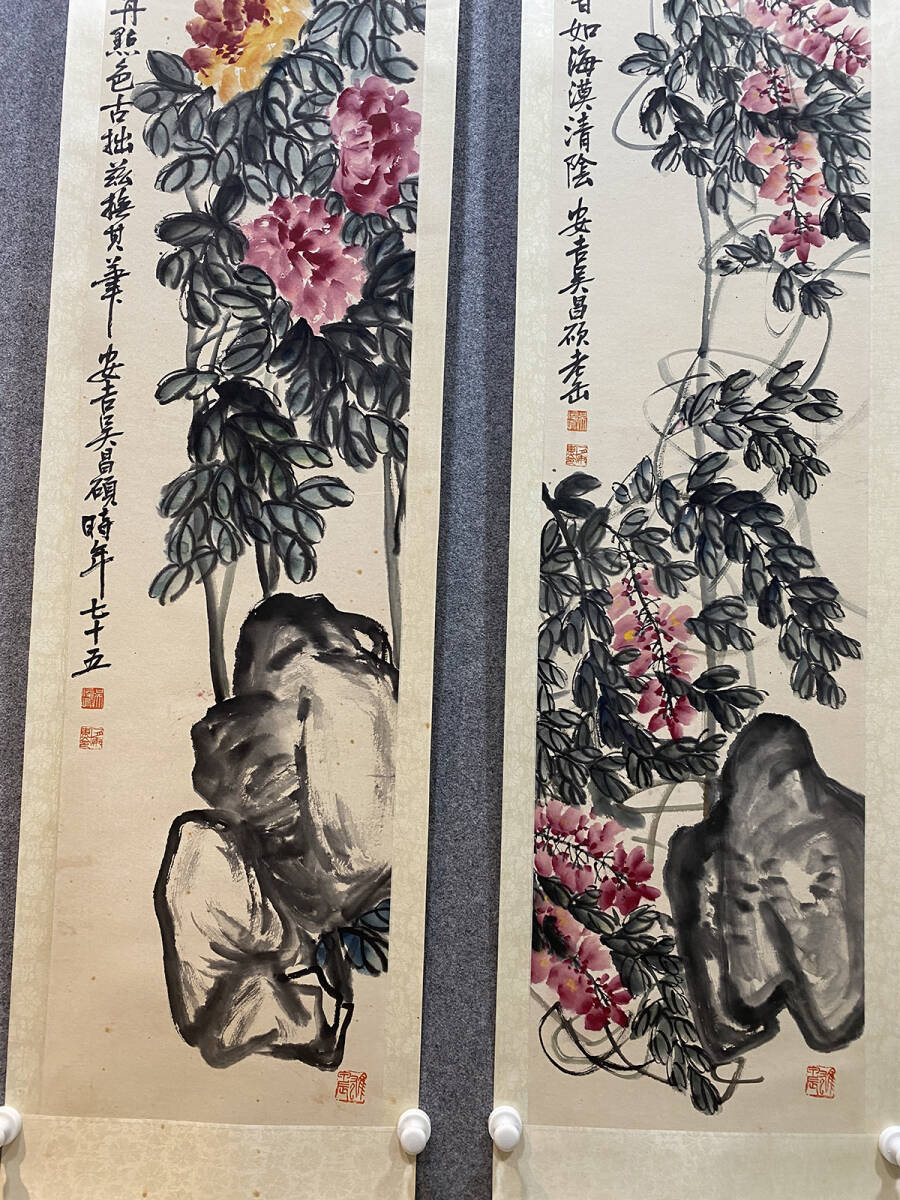 丹點色古拙茲撫其筆 安吉吳昌碩時年七十五
如海漠清陰 安吉吳昌碩老缶